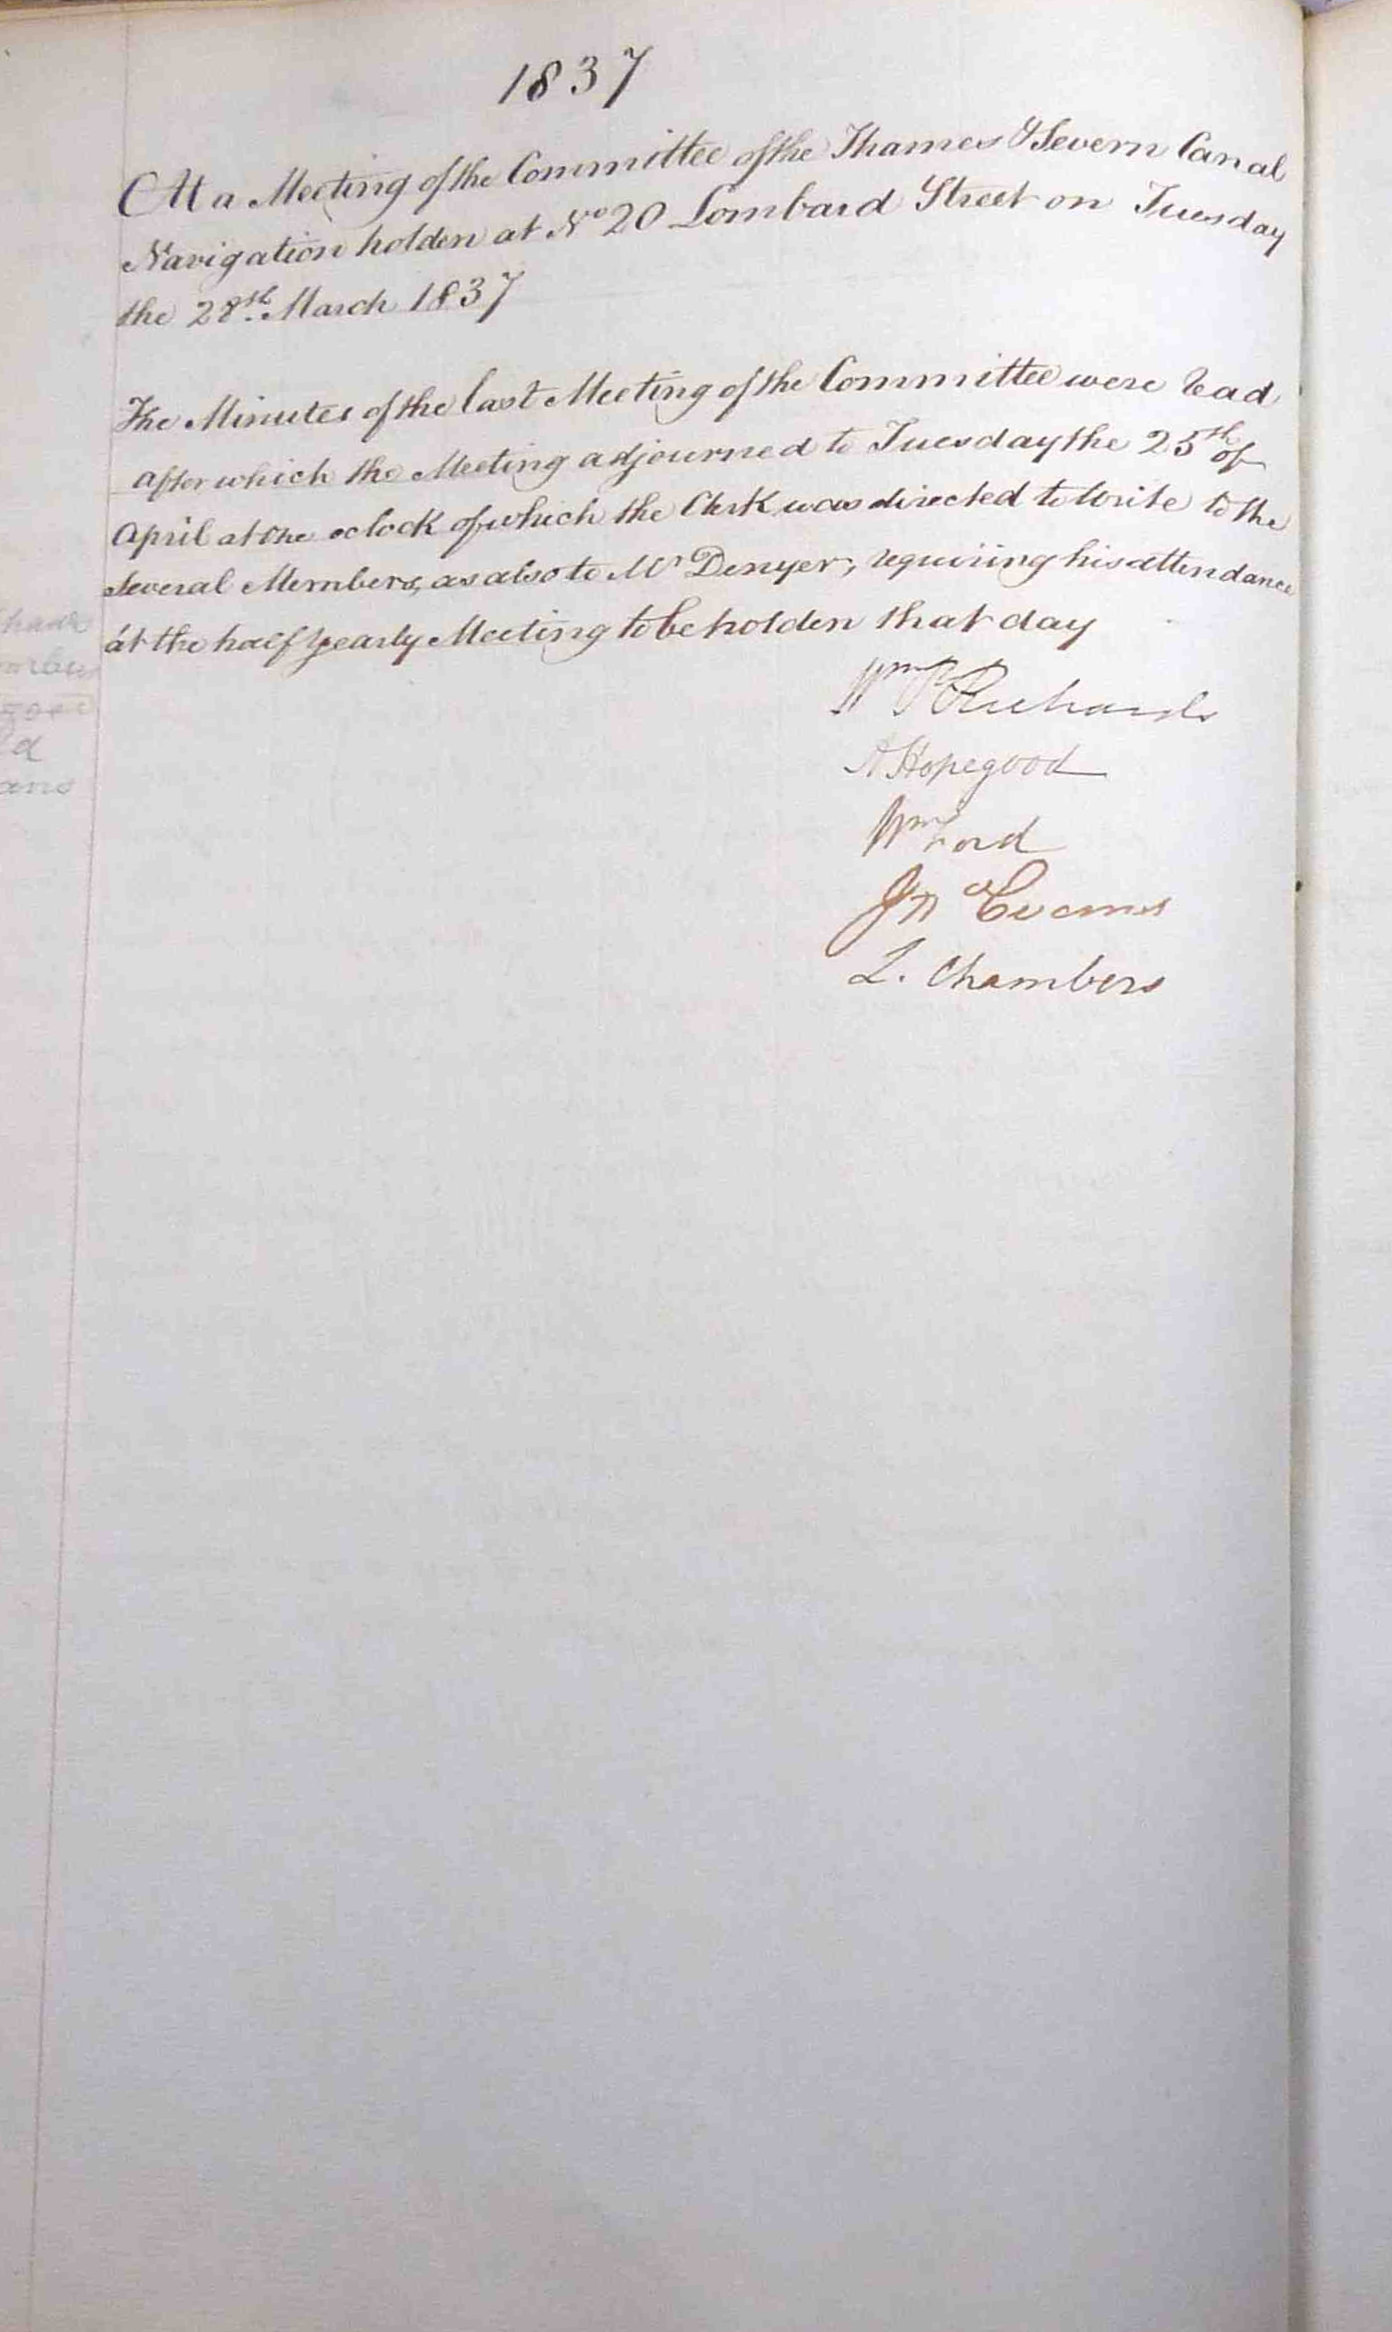 1837
At a Meeting of the Committee of the Thames & Severn Canal
Navigation holden at No 20 Lombard Street on Tuesday
the 28th March 1837
The Minutes of the last Meeting of the Committee were read
after which the Meeting adjourned to Tuesday the 25th of
April at One oclock of which the Clerk was directed to write to the
several Members, as also to Mr Denyer, requiring his attendance
at the half yearly Meeting to be holden that day
Wm P Richards
A Hopegood
Wm Ford
Jn Evans
L. Chambers